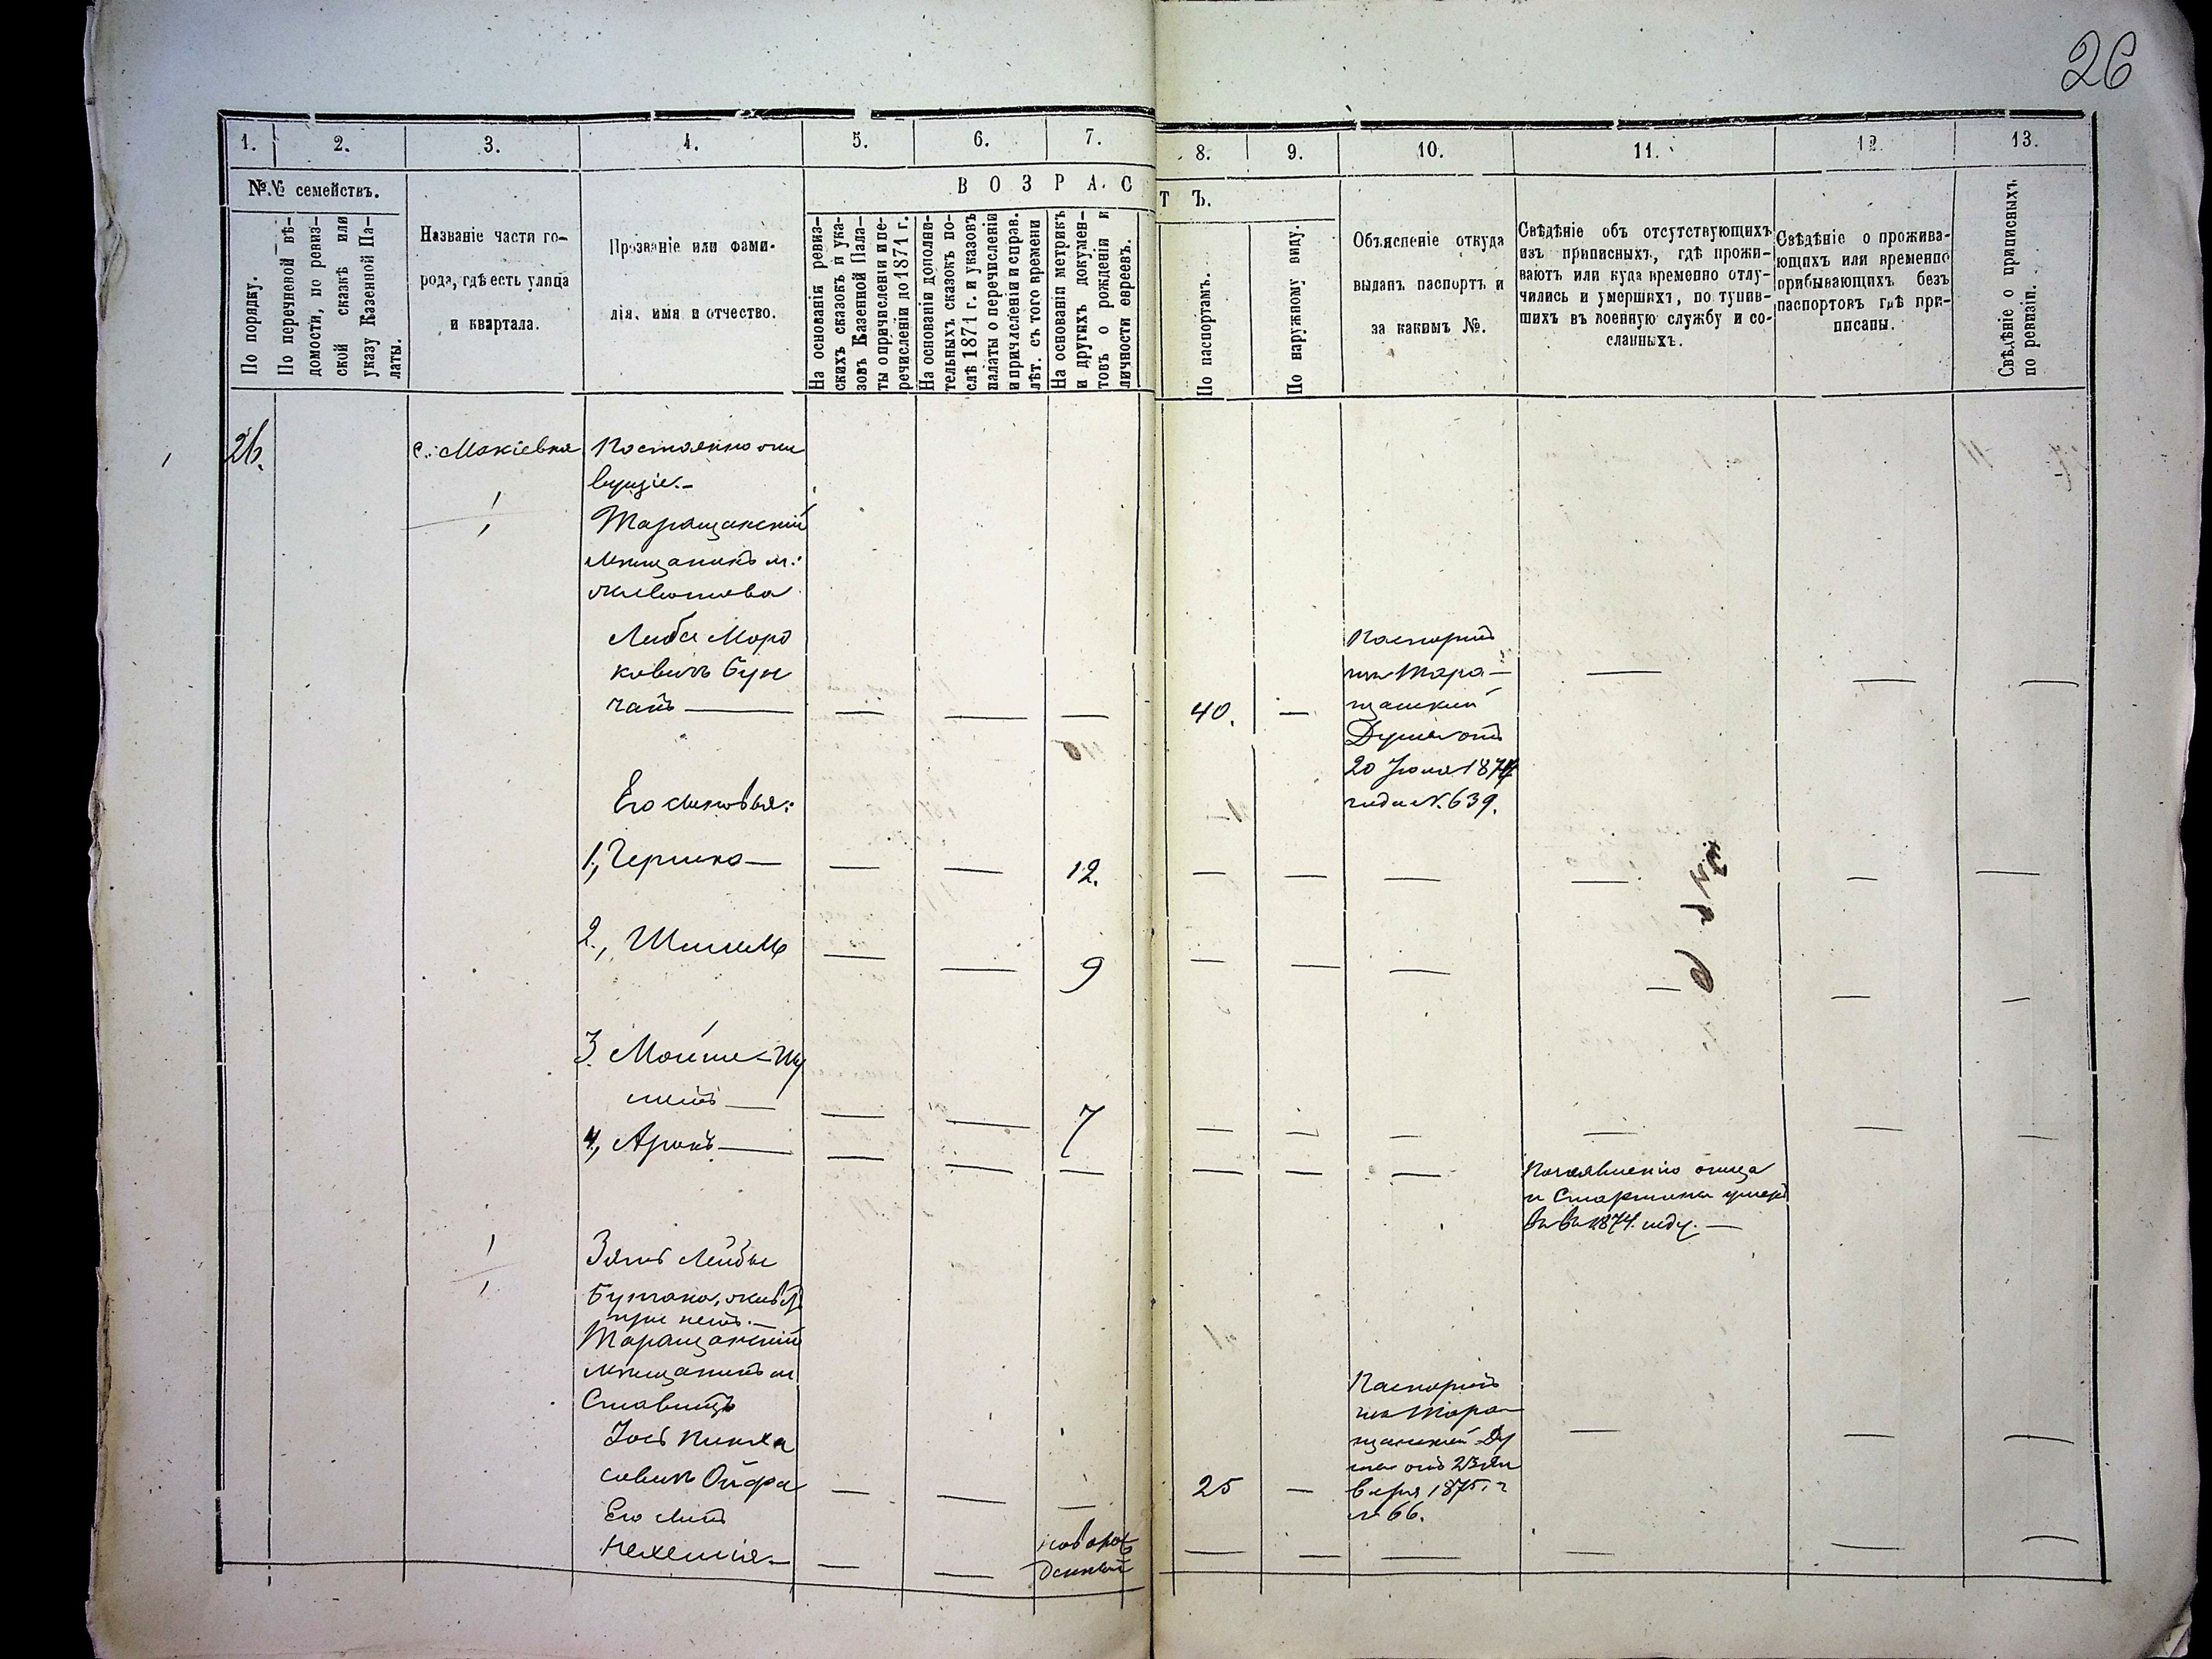 26
1. 2. 3. 4. 5. 6. 7. 8. 9. 10. 11. 12. 13.
№№ семействъ.
В О З Р А С Т Ъ.
По порядку.
По перечневой вѣ-
домости, по ревиз-
ской сказкѣ или
указу Казенной Па-
латы.
Названіе части го-
рода, гдѣ есть улица
и квартала.
Прозваніе или фами-
лія, имя и отчество.
На основаніи ревиз-
скихъ сказокъ и ука-
зовъ Казенной Пала-
ты о причисленіи и пе-
речисленіи до 1871 г.
На основаніи дополни-
тельныхъ сказокъ по-
слѣ 1871 г. и указовъ
палаты о перечисленіи
и причисленіи и справ.
лѣт. съ того времени
На основаніи метрикъ
и другихъ докумен-
товъ о рожденіи и
личности евреевъ.
По паспортамъ.
По наружному виду.
Объясненіе откуда
выданъ паспортъ и
за какимъ №.
Свѣдѣніе объ отсутствующихъ
изъ приписныхъ, гдѣ прожи-
ваютъ или куда временно отлу-
чились и умершихъ, поступив-
шихъ въ военную службу и со-
сланныхъ.
Свѣдѣніе о прожива-
ющихъ или временно
прибывающихъ безъ
паспортовъ гдѣ при-
писаны.
Свѣдѣніе о приписныхъ
по ревизіи.
26.
с. Макіевка
Постоянно жи
вущіе.-
Таращанскій
мѣщанинъ м:
Животова
Лейба Моро
ковичъ Бун
чакъ — — — — 40. —
Паспортъ
изъ Тара-
щанской
Думы отъ
20 Іюля 1874
года №. 639.
Его сыновья:
1, Гершко — — — 12. — — — — — —
2., Шмиль — — 9 — — — — — —
3. Мойше-Шу
лимъ — — — 7 — — — — — —
4, Аронъ — — — — — — —
По заявленію отца
и Старшины умеръ
въ 1874. году. —
Зять Лейбы
Бунчака, живетъ
при немъ.—
Таращанскій
мѣщанинъ м
Ставищъ
Іось Пинха
совичъ Ойфа — — — 25 —
Паспортъ
изъ Тара-
щанской Ду
мы отъ 23 Ян
варя 1875. г
№ 66.
Его сынъ
Нехемія. — — —
новорож
денный